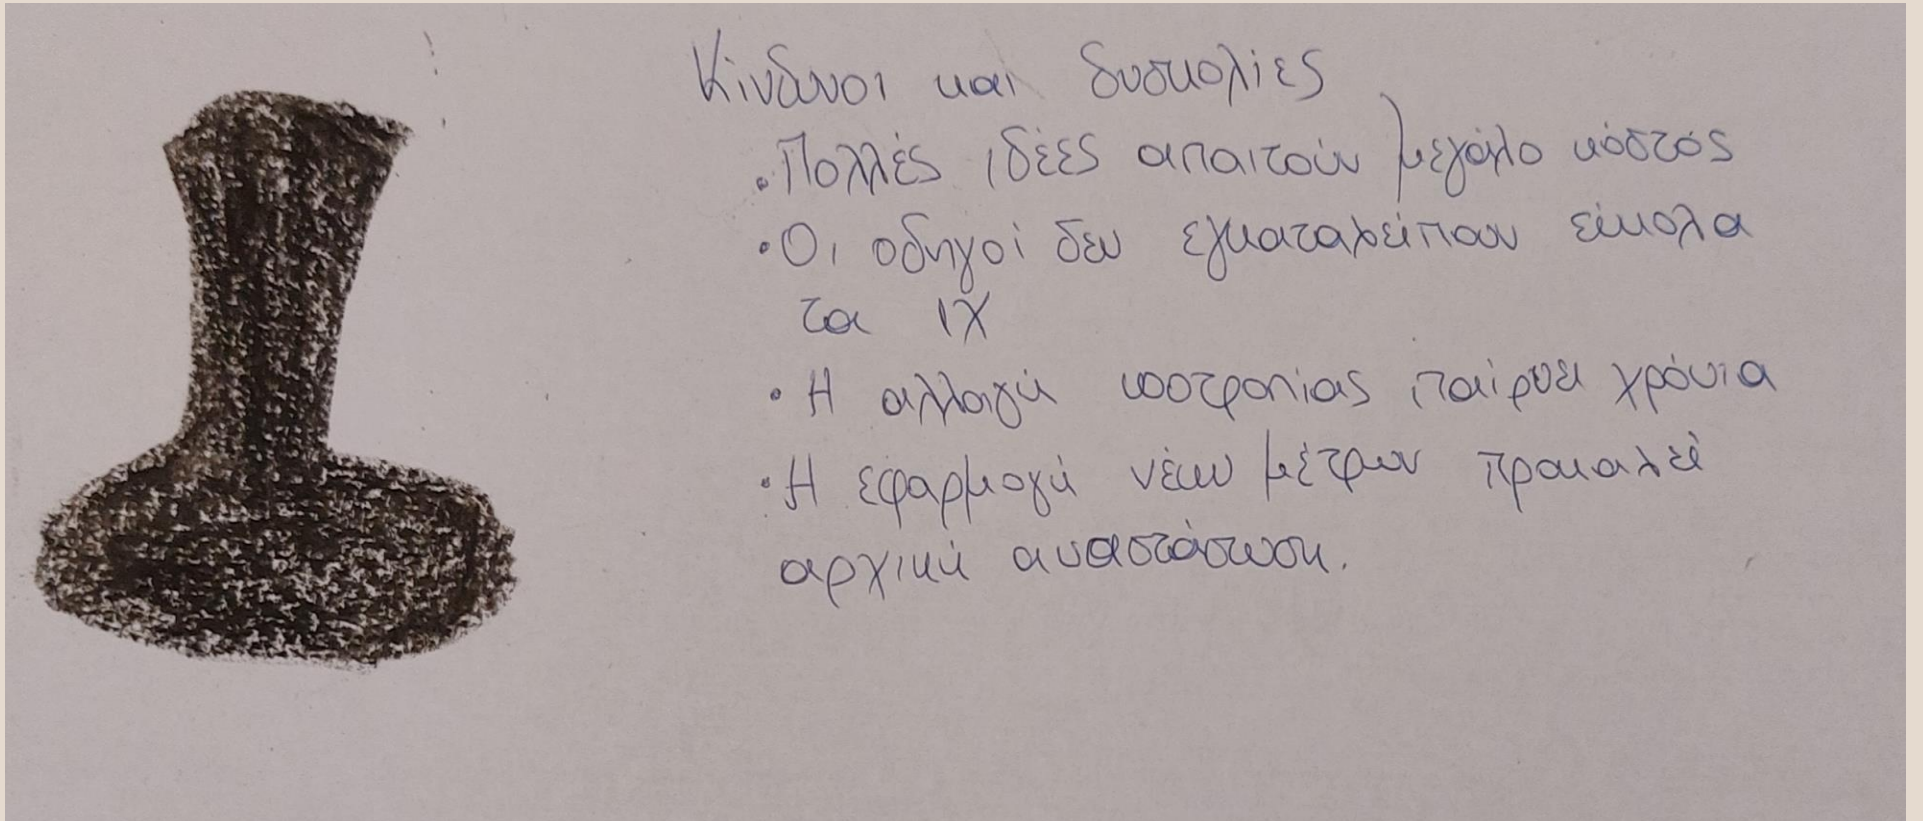 Κίνδυνοι και δυσκολίες
• Πολλές ιδέες απαιτούν μεγάλο κόστος
• Οι οδηγοί δεν εγκαταλείπουν εύκολα
τα ΙΧ
• Η αλλαγή νοοτροπίας παίρνει χρόνια
• Η εφαρμογή νέων μέτρων προκαλεί
αρχική αναστάτωση.